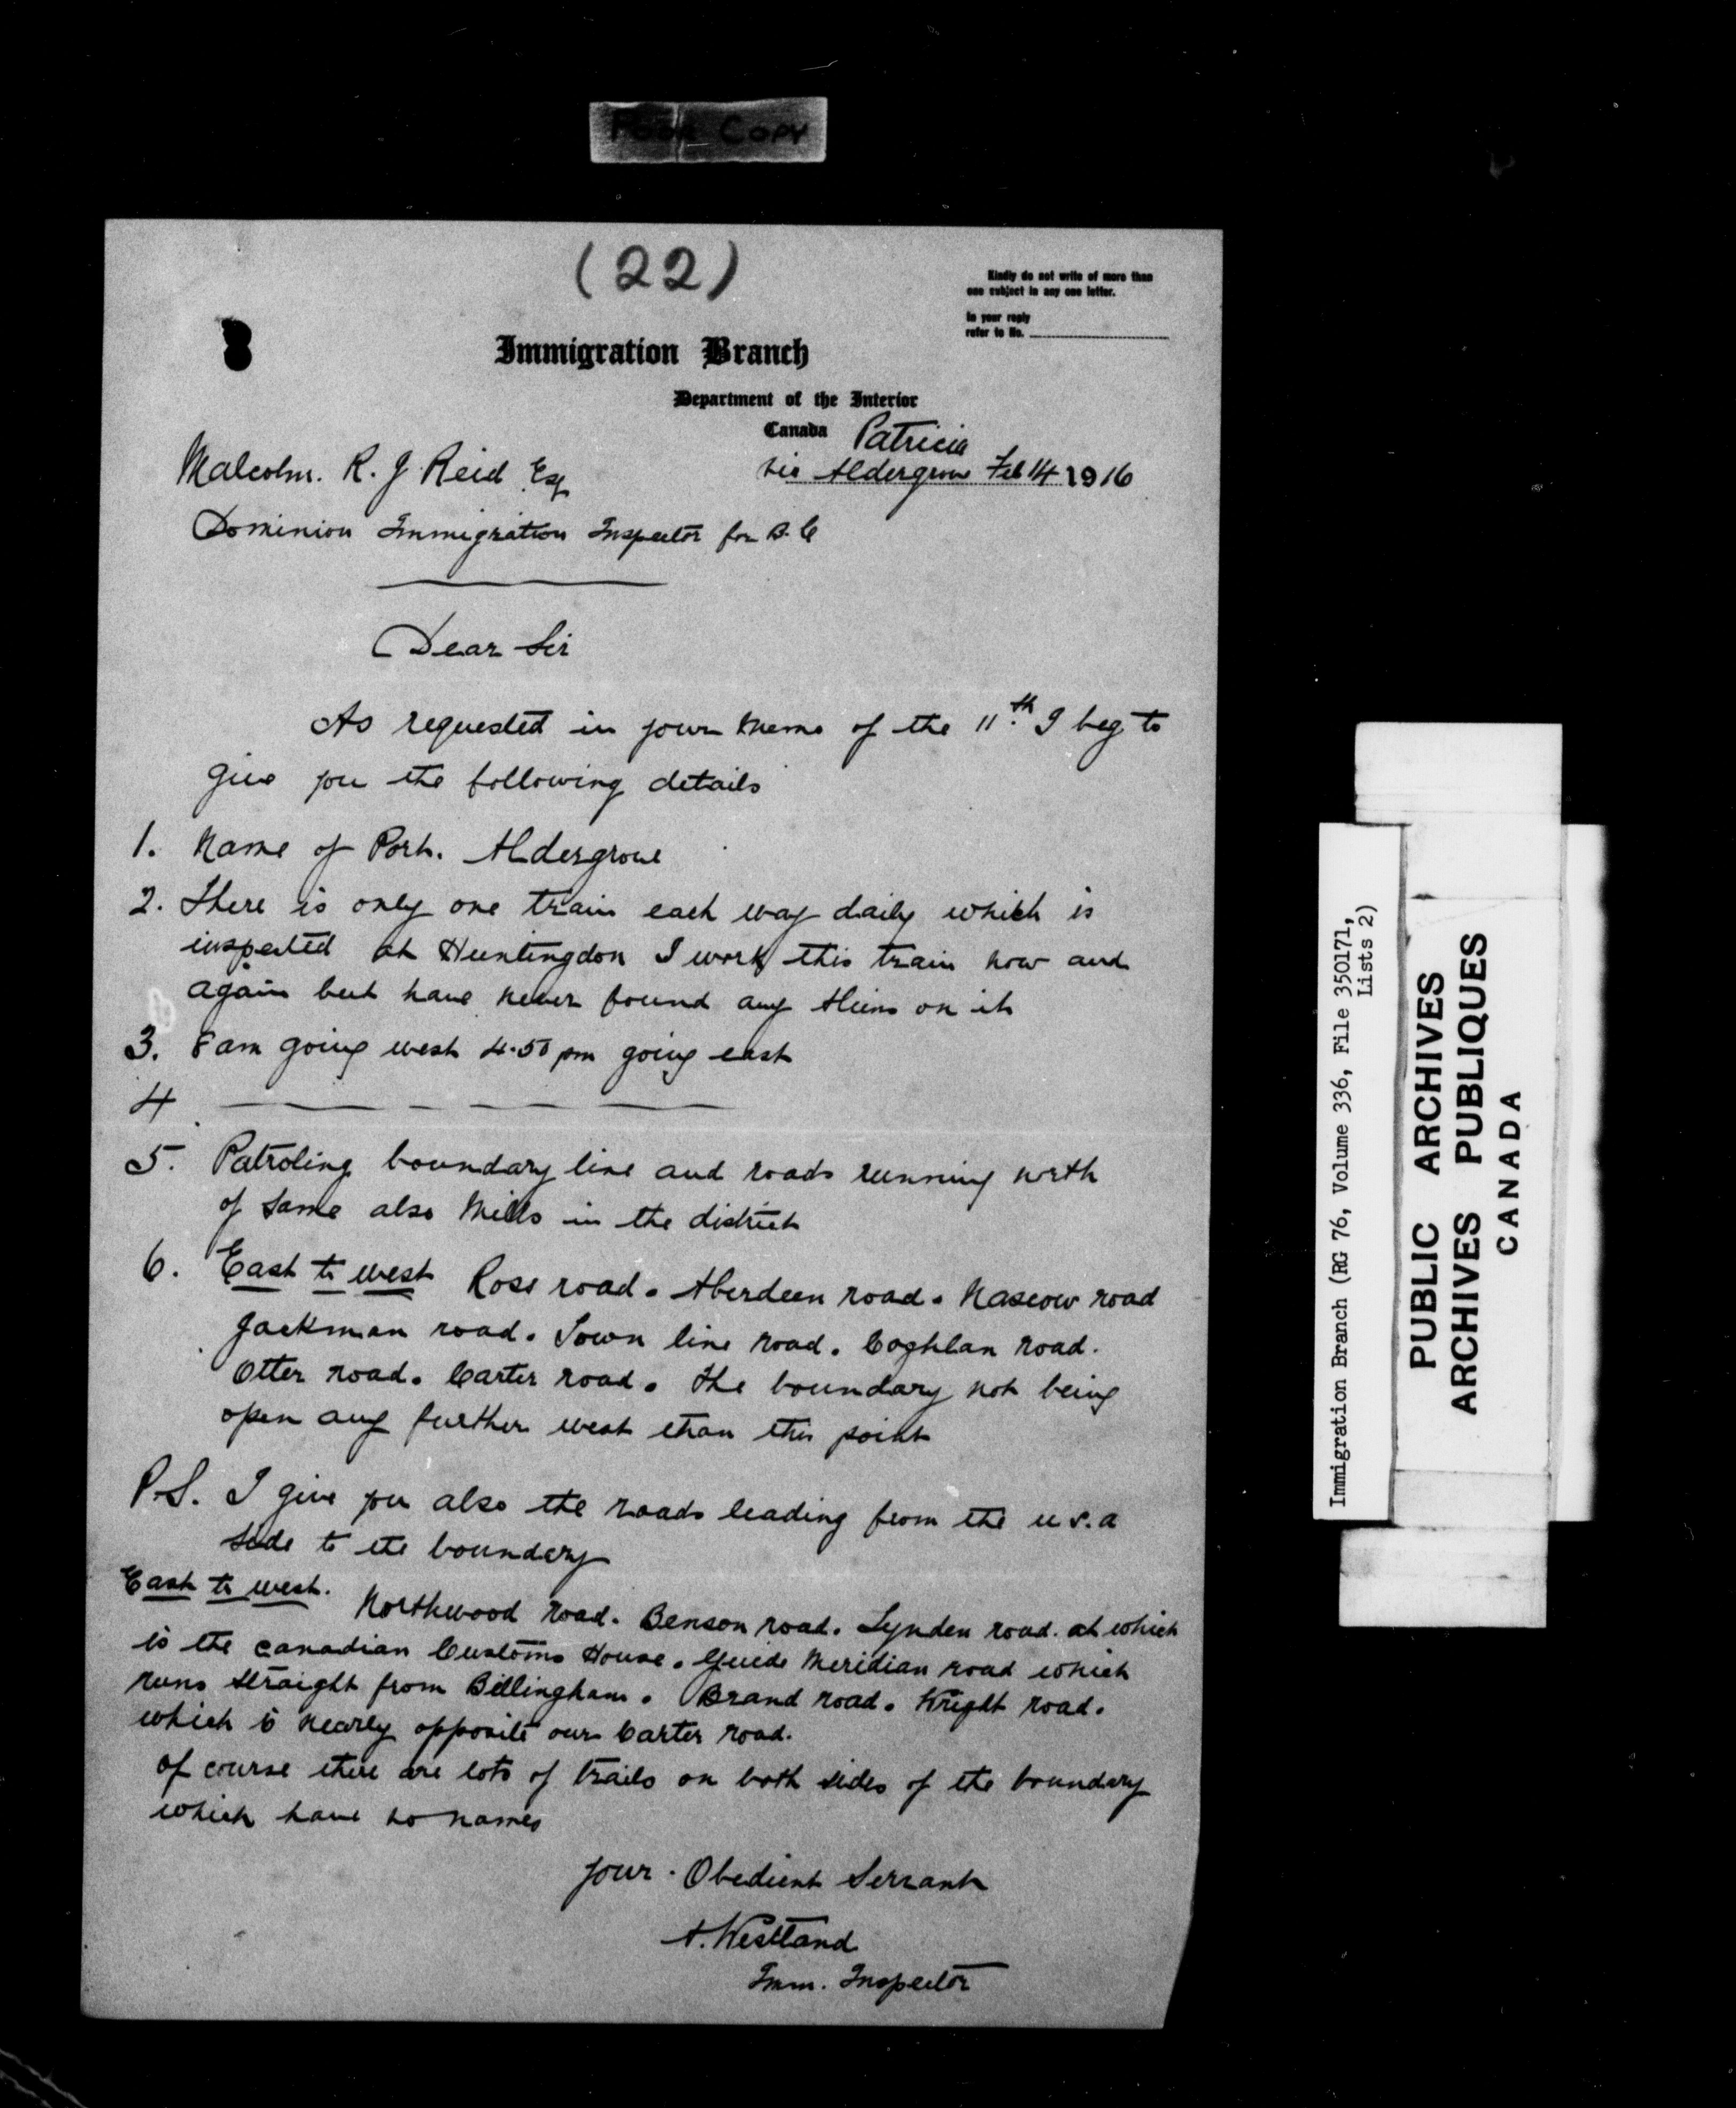 Poor Copy
(22)
Kindly do not write of more than
one subject in any one letter.
In your reply
refer to No.
Immigration Branch
Department of the Interior
Canada Patricia
via Aldergrove Feb 14 1916
Malcolm. R. J Reid Esq
Dominion Immigration Inspector for B.C
Dear Sir
As requested in your memo of the 11th. I beg to
give you the following details
1. Name of Port. Aldergrove
2. There is only one train each way daily which is
inspected at Huntingdon I work this train now and
again but have never found any Aliens on it
3. 8 am going west 4.50 pm going east
4
5. Patroling boundary line and roads running north
of same also Mills in the district
6. East to west Ross road. Aberdeen road. Nascow road
Jackman road. Town line road. Coghlan road.
Otter road. Carter road. The boundary not being
open any further west than this point
P.S. I give you also the roads leading from the u.s.a
side to the boundary
East to west. Northwood road. Benson road. Lynden road. at which
is the Canadian Customs House. Guide Meridian road which
runs straight from Bellingham. Brand road. Wright road.
which is nearly opposite our Carter road.
Of course there are lots of trails on both sides of the boundary
which have no names
your. Obedient Servant
A. Westland
Imm. Inspector
Immigration Branch (RG 76, Volume 336, File 350171,
Lists 2)
PUBLIC ARCHIVES
ARCHIVES PUBLIQUES
CANADA